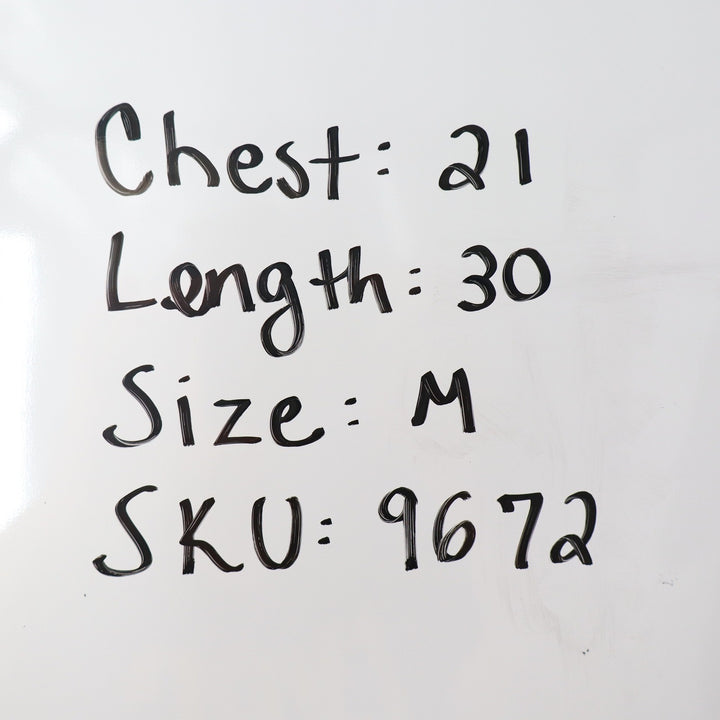 Chest: 21
Length: 30
Size: M
SKU: 9672